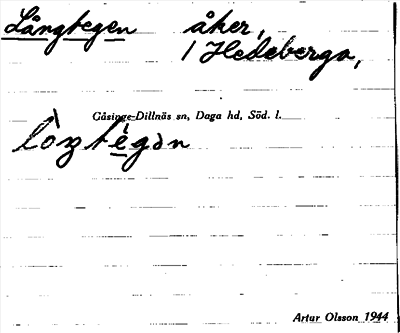 Långtegen åker,
1 Hedeberga,
Gåsinge-Dillnäs sn, Daga hd, Söd. l.
lòŋtègən
Artur Olsson 1944